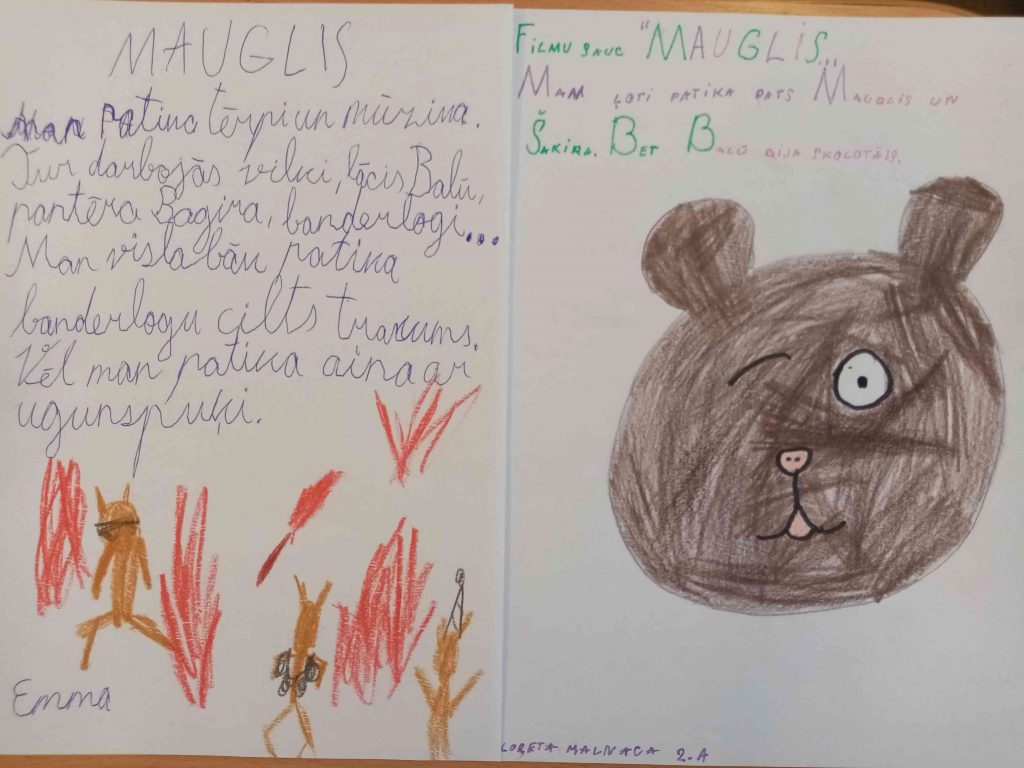 MAUGLIS
Man patika tērpi un mūzika.
Tur darbojās vilki, lācis Balū,
pantēra Bagira, banderlogi...
Man vislabāk patika
banderlogu cilts trakums.
Vēl man patika aina ar
ugunspuķi.
Emma
FILMU SAUC "MAUGLIS...
MAM ĻOTI PATIKA PATS MAUGLIS UN
ŠAKIRA. BET BALŪ BIJA SKOLOTĀJS.
2.A